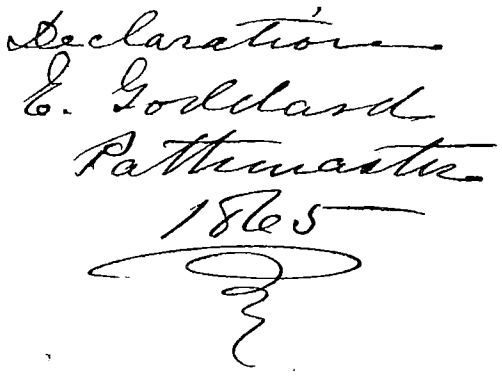 Declaration
E. Goddard
Pathmaster
1865